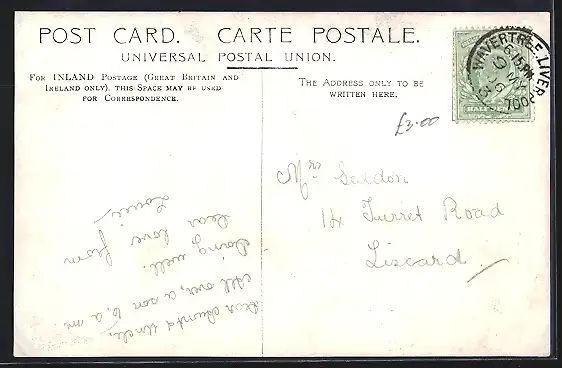 POST CARD. CARTE POSTALE.
UNIVERSAL POSTAL UNION.
FOR INLAND POSTAGE (GREAT BRITAIN AND
IRELAND ONLY), THIS SPACE MAY BE USED
FOR CORRESPONDENCE.
THE ADDRESS ONLY TO BE
WRITTEN HERE.
WAVERTREE LIVER
6.15 PM
£3.00
Mrs Seddon
14 Turret Road
Liscard
Dear Aunt & Uncle,
All over, a son 6. a.m.
Doing well.
Dear love from
Louie